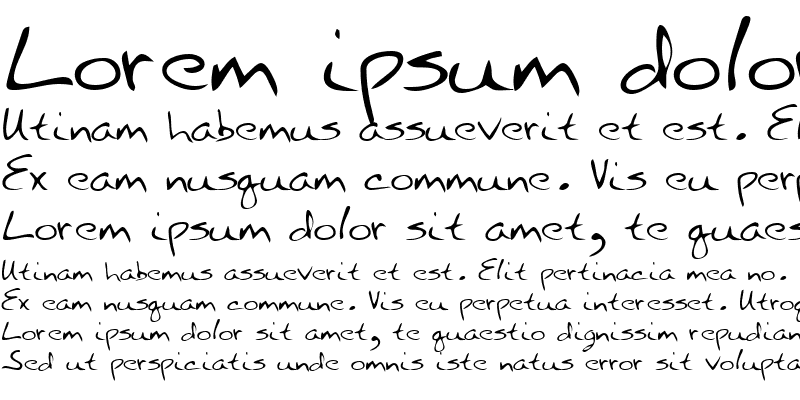 Lorem ipsum dolor
Utinam habemus assueverit et est. El
Ex eam nusquam commune. Vis eu perp
Lorem ipsum dolor sit amet, te quaes
Utinam habemus assueverit et est. Elit pertinacia mea no.
Ex eam nusquam commune. Vis eu perpetua interesset. Utroq
Lorem ipsum dolor sit amet, te quaestio dignissim repudian
Sed ut perspiciatis unde omnis iste natus error sit volupta